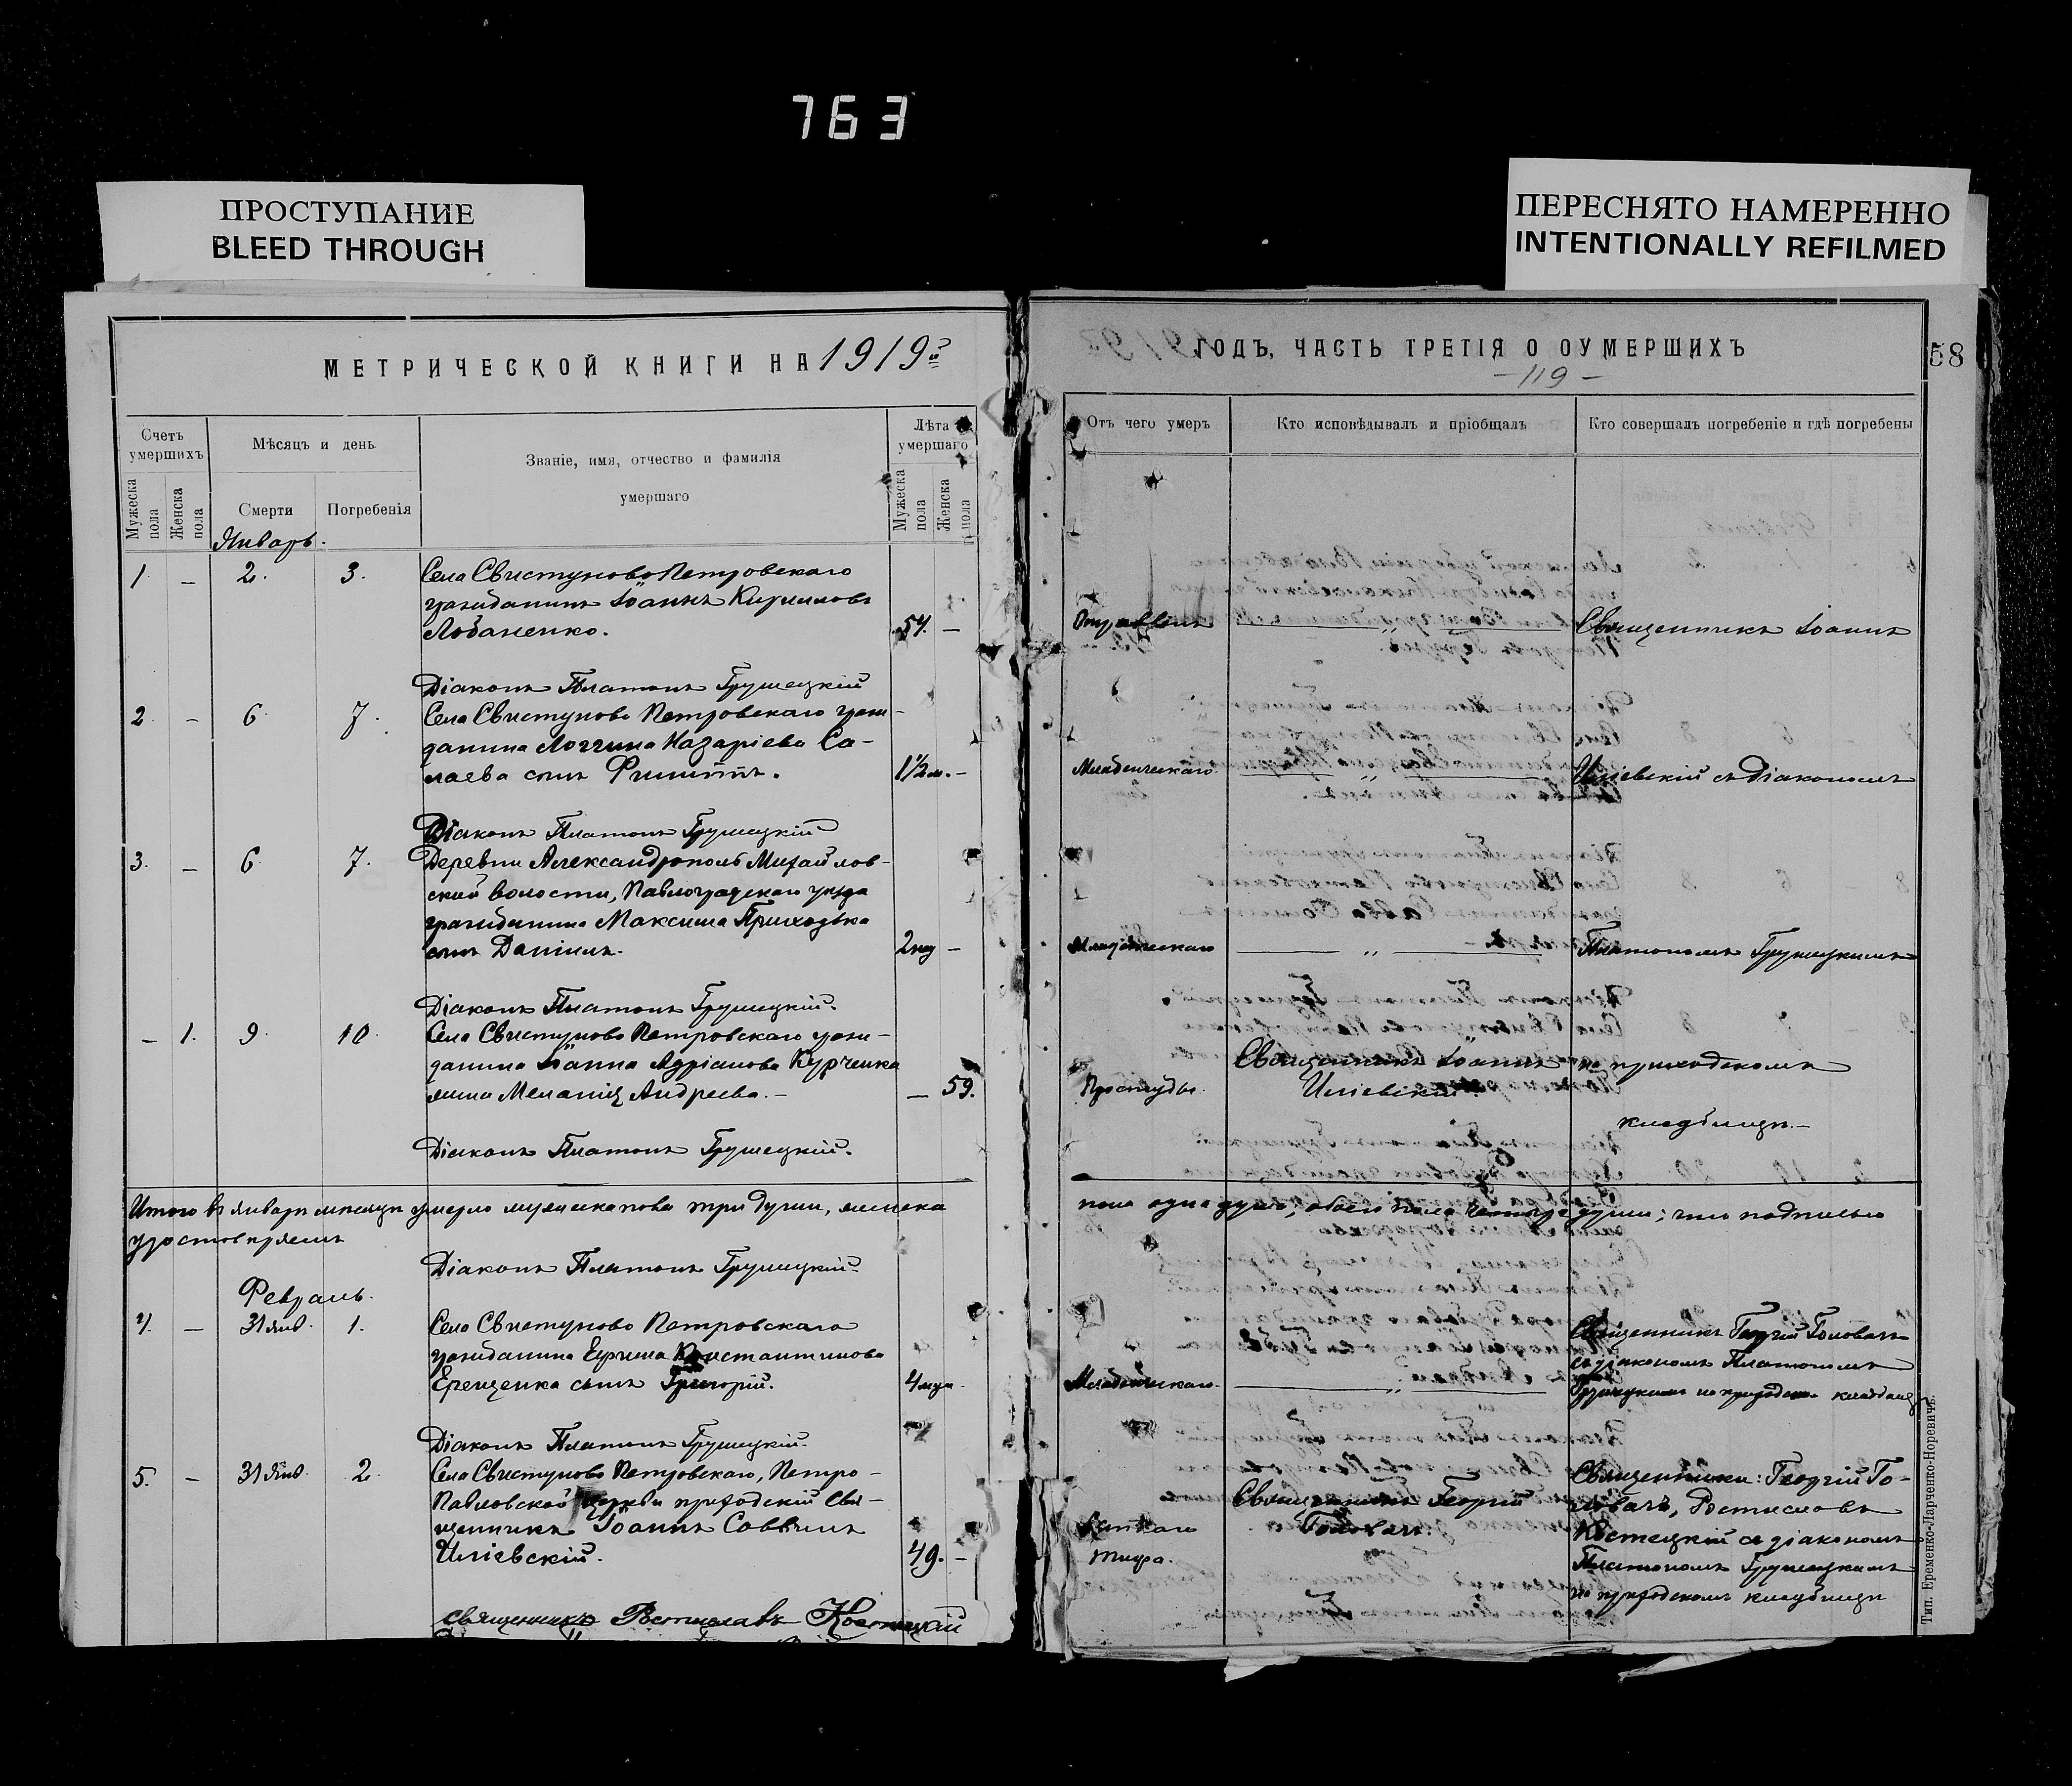 763
ПРОСТУПАНИЕ
BLEED THROUGH
ПЕРЕСНЯТО НАМЕРЕННО
INTENTIONALLY REFILMED
МЕТРИЧЕСКОЙ КНИГИ НА 1919й
Счетъ умершихъ
Мужеска пола
Женска пола
Мѣсяцъ и день
Смерти
Погребенія
Званіе, имя, отчество и фамилія
умершаго
Лѣта умершаго
Мужеска пола
Женска пола
Январь.
1. – 2. 3. Села Свистуново Петровскаго
гражданинъ Іоаннъ Кирилловъ
Лобаненко. 54. –
Діаконъ Платонъ Грушецкій
2. – 6. 7. Села Свистуново Петровскаго граж-
данина Логгина Назаріева Са-
лаева сынъ Филиппъ. 1½ м. –
Діаконъ Платонъ Грушецкій
3. – 6. 7. Деревни Александрополь Михайлов-
ской волости, Павлоградскаго уѣзда
гражданина Максима Приходька
сынъ Даніилъ. 2 нед –
Діаконъ Платонъ Грушецкій.
– 1. 9. 10. Села Свистуново Петровскаго граж-
данина Іоанна Адріанова Курченка
жена Меланія Андреева. – – 59.
Діаконъ Платонъ Грушецкій.
Итого въ январѣ мѣсяцѣ умерло мужеска пола три души, женска
удостовѣряемъ
Діаконъ Платонъ Грушецкій
Февраль.
4. – 31 янв. 1. Села Свистуново Петровскаго
гражданина Ефрема Константинова
Ерещенка сынъ Григорій. 4 мѣс.
Діаконъ Платонъ Грушецкій.
5. – 31 янв. 2. Села Свистуново Петровскаго, Петро-
Павловской церкви приходскій Свя-
щенникъ Іоаннъ Саввинъ
Иліевскій. 49. –
священникъ Ростиславъ Костецкій
ГОДЪ, ЧАСТЬ ТРЕТІЯ О ОУМЕРШИХЪ
58
– 119 –
Отъ чего умеръ
Кто исповѣдывалъ и пріобщалъ
Кто совершалъ погребеніе и гдѣ погребены
Отравленъ „ Священникъ Іоаннъ
Младенческаго „ Иліевскій съ діакономъ
Младенческаго „ Платономъ Грушецкимъ
Священникъ Іоаннъ на приходскомъ
Простуды. Иліевскій.
кладбищѣ. –
пола одна душа, обоего пола четыре души; что подписью
Священникъ Георгій Головачъ
съ діакономъ Платономъ
Младенческаго „ Грушецкимъ на приходском кладбищѣ
Священники: Георгій Го-
Священникъ Георгій ловачъ, Ростиславъ
тифа. Головачъ. Костецкій съ діакономъ
Платономъ Грушецкимъ
на приходскомъ кладбищѣ
Тип. Еременко-Ларченко-Норевичъ.